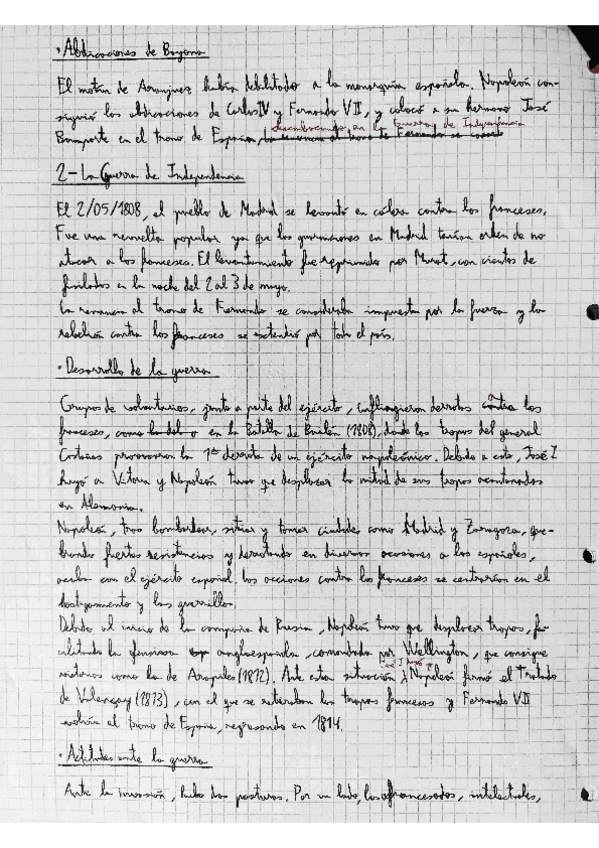 · Abdicaciones de Bayona
El motín de Aranjuez había debilitado a la monarquía española. Napoleón con-
siguió las abdicaciones de Carlos IV y Fernando VII, y colocó a su hermano José
Bonaparte en el trono de España, desembocando en la Guerra de Independencia
2- La Guerra de Independencia
El 2/05/1808, el pueblo de Madrid se levantó en cólera contra los franceses.
Fue una revuelta popular ya que las guarniciones en Madrid tenían orden de no
atacar a los franceses. El levantamiento fue reprimido por Murat, con cientos de
fusilados en la noche del 2 al 3 de mayo.
La renuncia al trono de Fernando se consideraba impuesta por la fuerza y la
rebelión contra los franceses se extendió por todo el país.
· Desarrollo de la guerra
Grupos de voluntarios, junto a parte del ejército, infligieron derrotas a los
franceses, como en la Batalla de Bailén (1808), donde las tropas del general
Castaños provocaron la 1ª derrota de un ejército napoleónico. Debido a esto, José I
huyó a Vitoria y Napoleón tuvo que desplazar la mitad de sus tropas acantonadas
en Alemania.
Napoleón, tras bombardear, sitiar y tomar ciudades como Madrid y Zaragoza, que-
brando fuertes resistencias y derrotando en diversas ocasiones a los españoles,
acaba con el ejército español. Las acciones contra los franceses se centrarían en el
hostigamiento y las guerrillas.
Debido al inicio de la campaña de Rusia, Napoleón tuvo que desplazar tropas, fa-
cilitando la ofensiva angloespañola, comandada por Wellington, que consigue
victorias como la de Arapiles (1812). Ante esta situación José I huyó y Napoleón firmó el Tratado
de Valençay (1813), con el que se retiraban las tropas francesas y Fernando VII
volvía al trono de España, regresando en 1814.
· Actitudes ante la guerra
Ante la invasión, hubo dos posturas. Por un lado, los afrancesados, intelectuales,